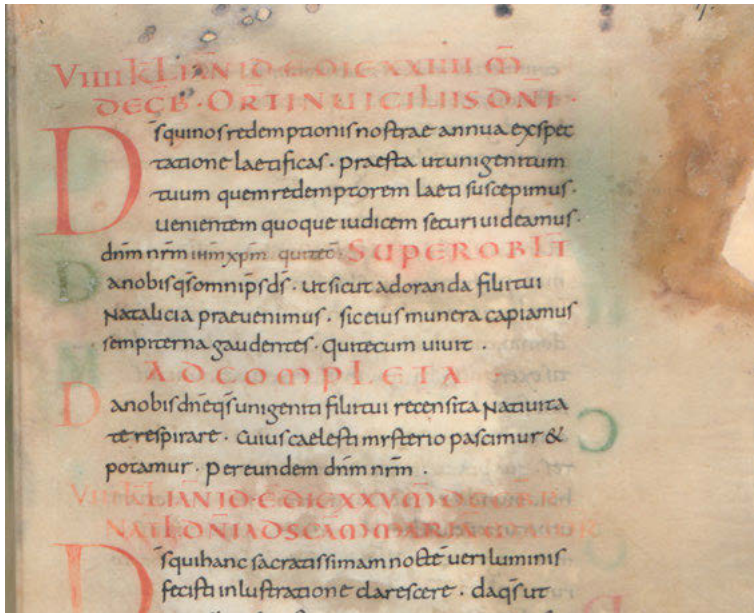 VIIII KL IAN ID Ē DIE XXIIII M̄
DECB · ORT IN UICILIIS DNI ·
D s̄ qui nos redemptionis nostrae annua exspec
tatione laetificas · praesta ut unigenitum
tuum quem redemptorem laeti suscepimus ·
uenientem quoque iudicem securi uideamus ·
dn̄m nr̄m ih̄m xp̄m qui tec̄ · SUPER OBLT
D a nobis qs̄ omnip̄s ds̄ · ut sicut adoranda filii tui
Natalicia praeuenimus · sic eius munera capiamus
sempiterna gaudentes · qui tecum uiuit ·
AD COMPLETA
D a nobis dn̄e qs̄ unigeniti filii tui recensita Natiuita
te respirare · Cuius caelesti mysterio pascimur &
potamur · Per eundem dn̄m nr̄m ·
VIII KL IAN ID Ē DIE XXV M̄ DECB
NAT DNI AD SCAM MARIAM
D s̄ qui hanc sacratissimam nocte̅ ueri luminis
fecisti inlustratione clarescere · da qs̄ ut